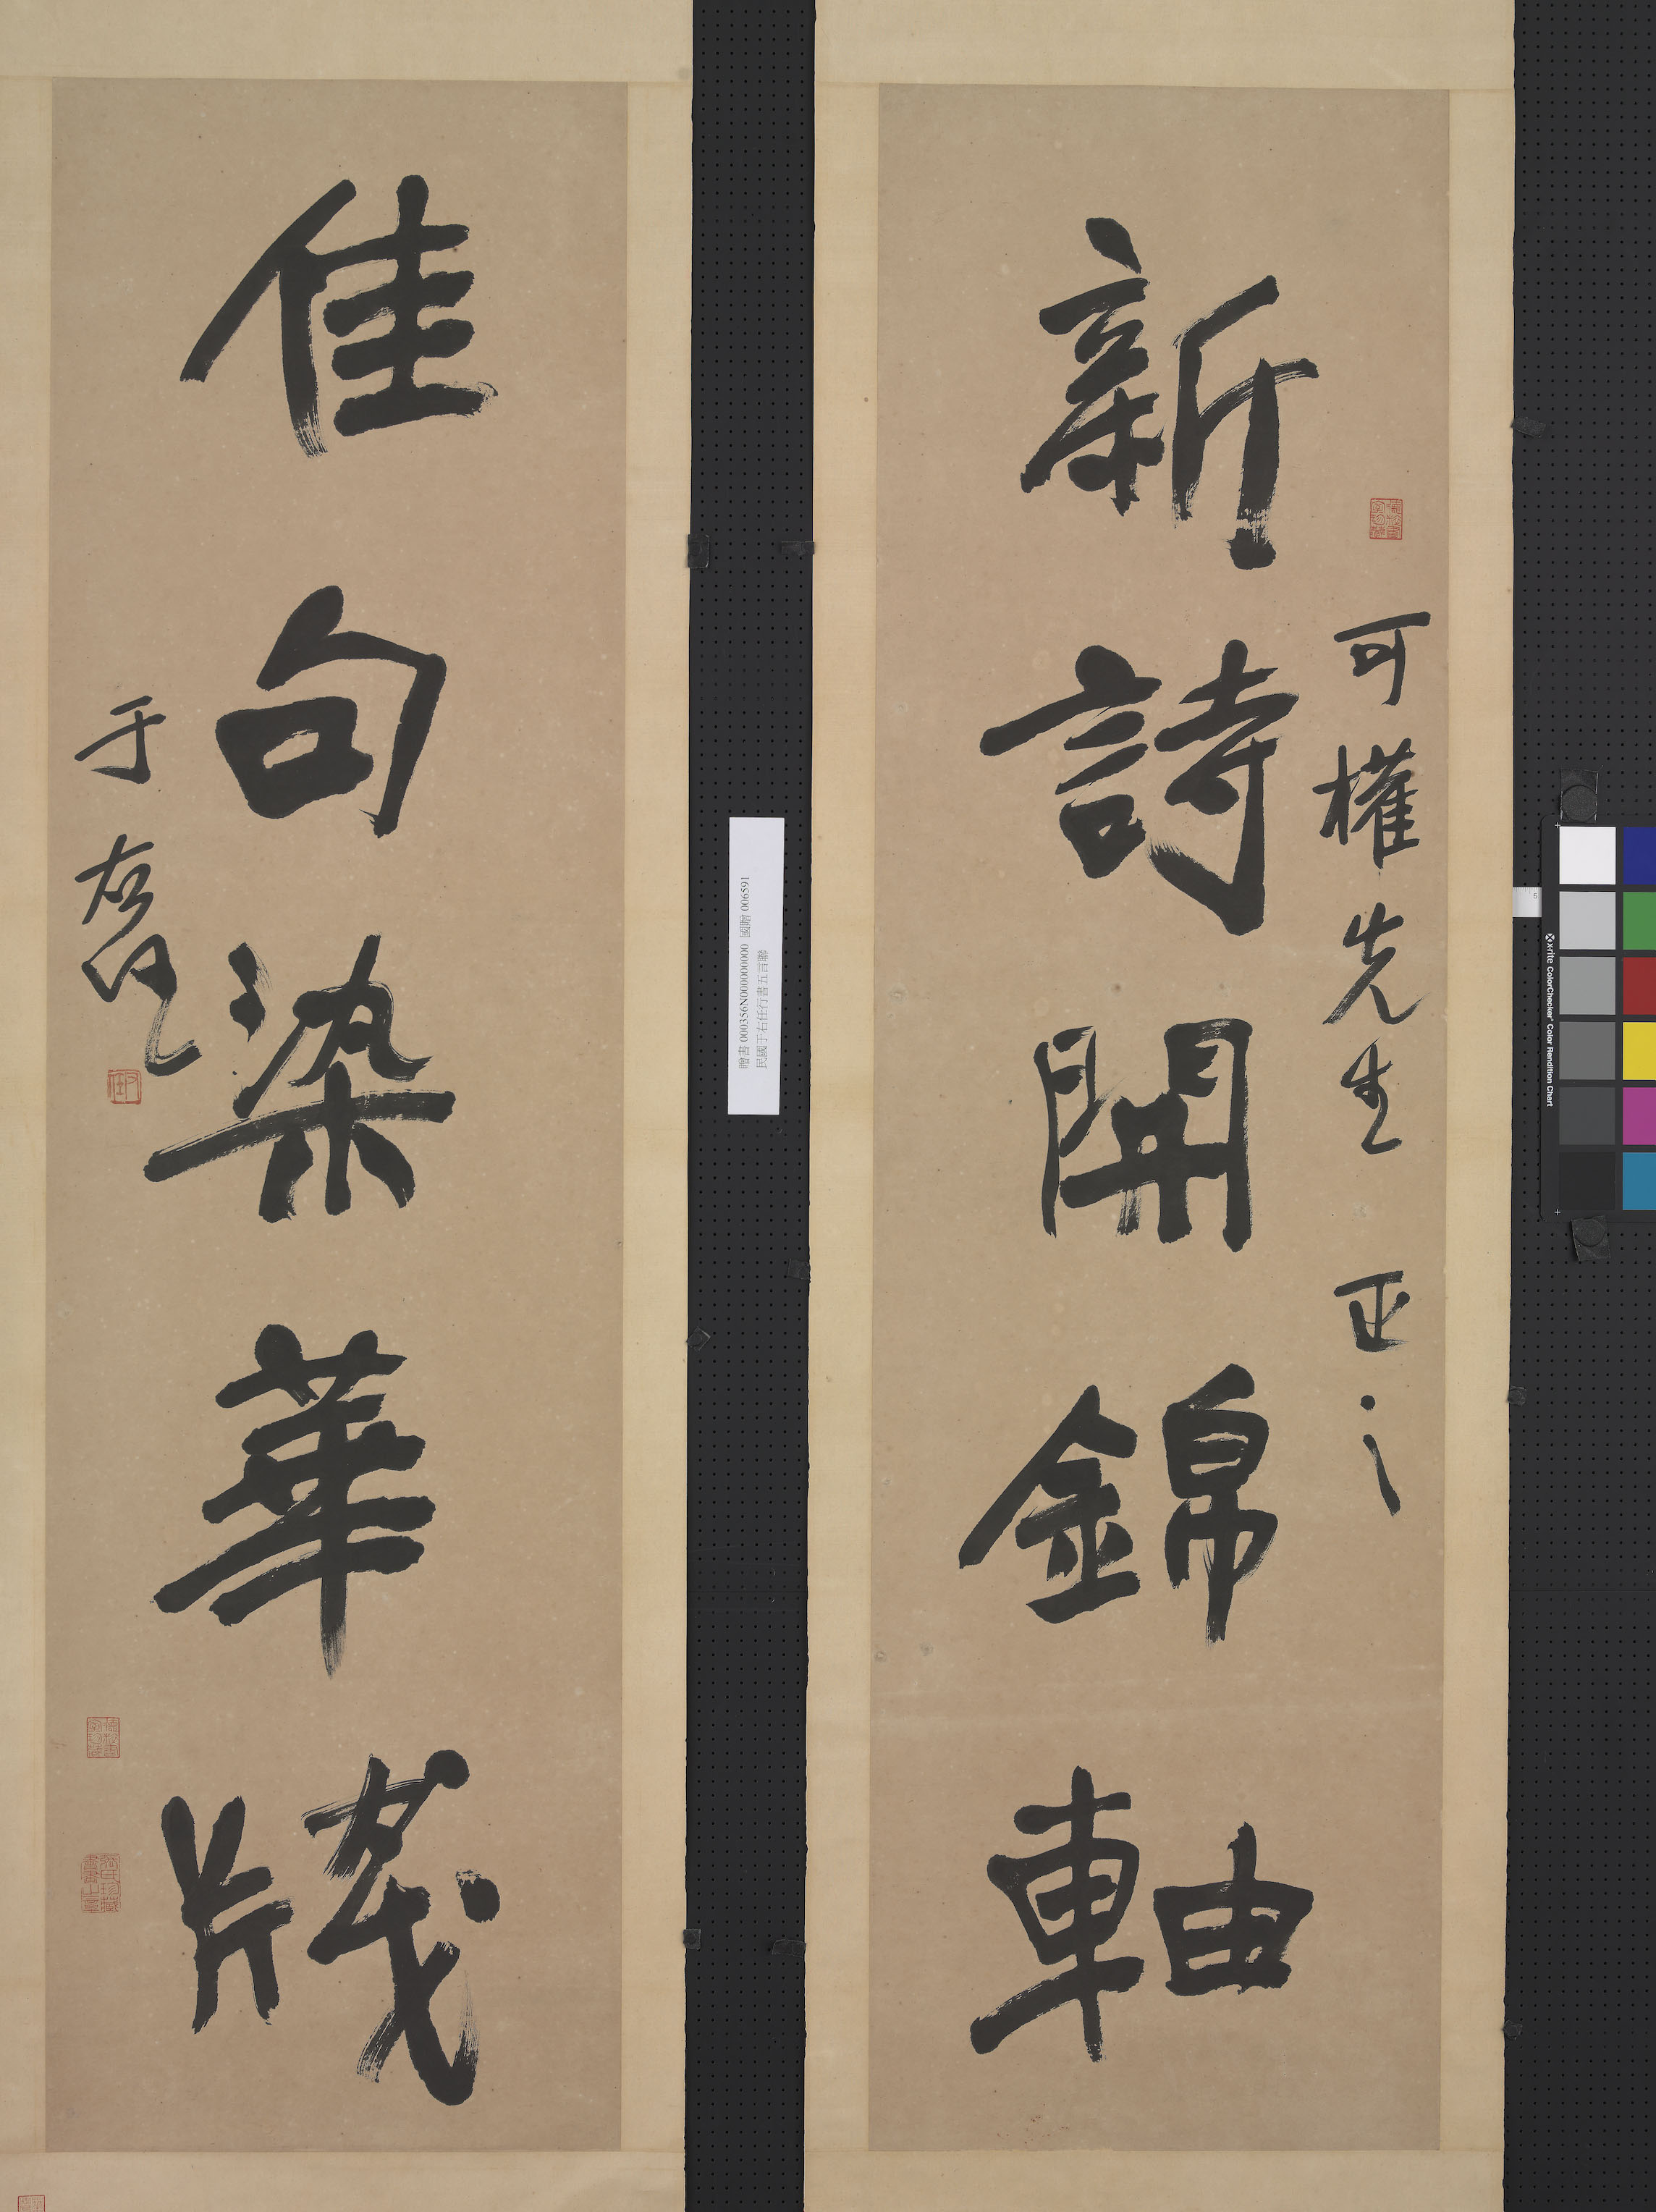 新詩開錦軸
可權先生
正之
佳句染華牋
于右任
贈書 000356N000000000 國贈 006591
民國于右任行書五言聯
x-rite ColorChecker® Color Rendition Chart